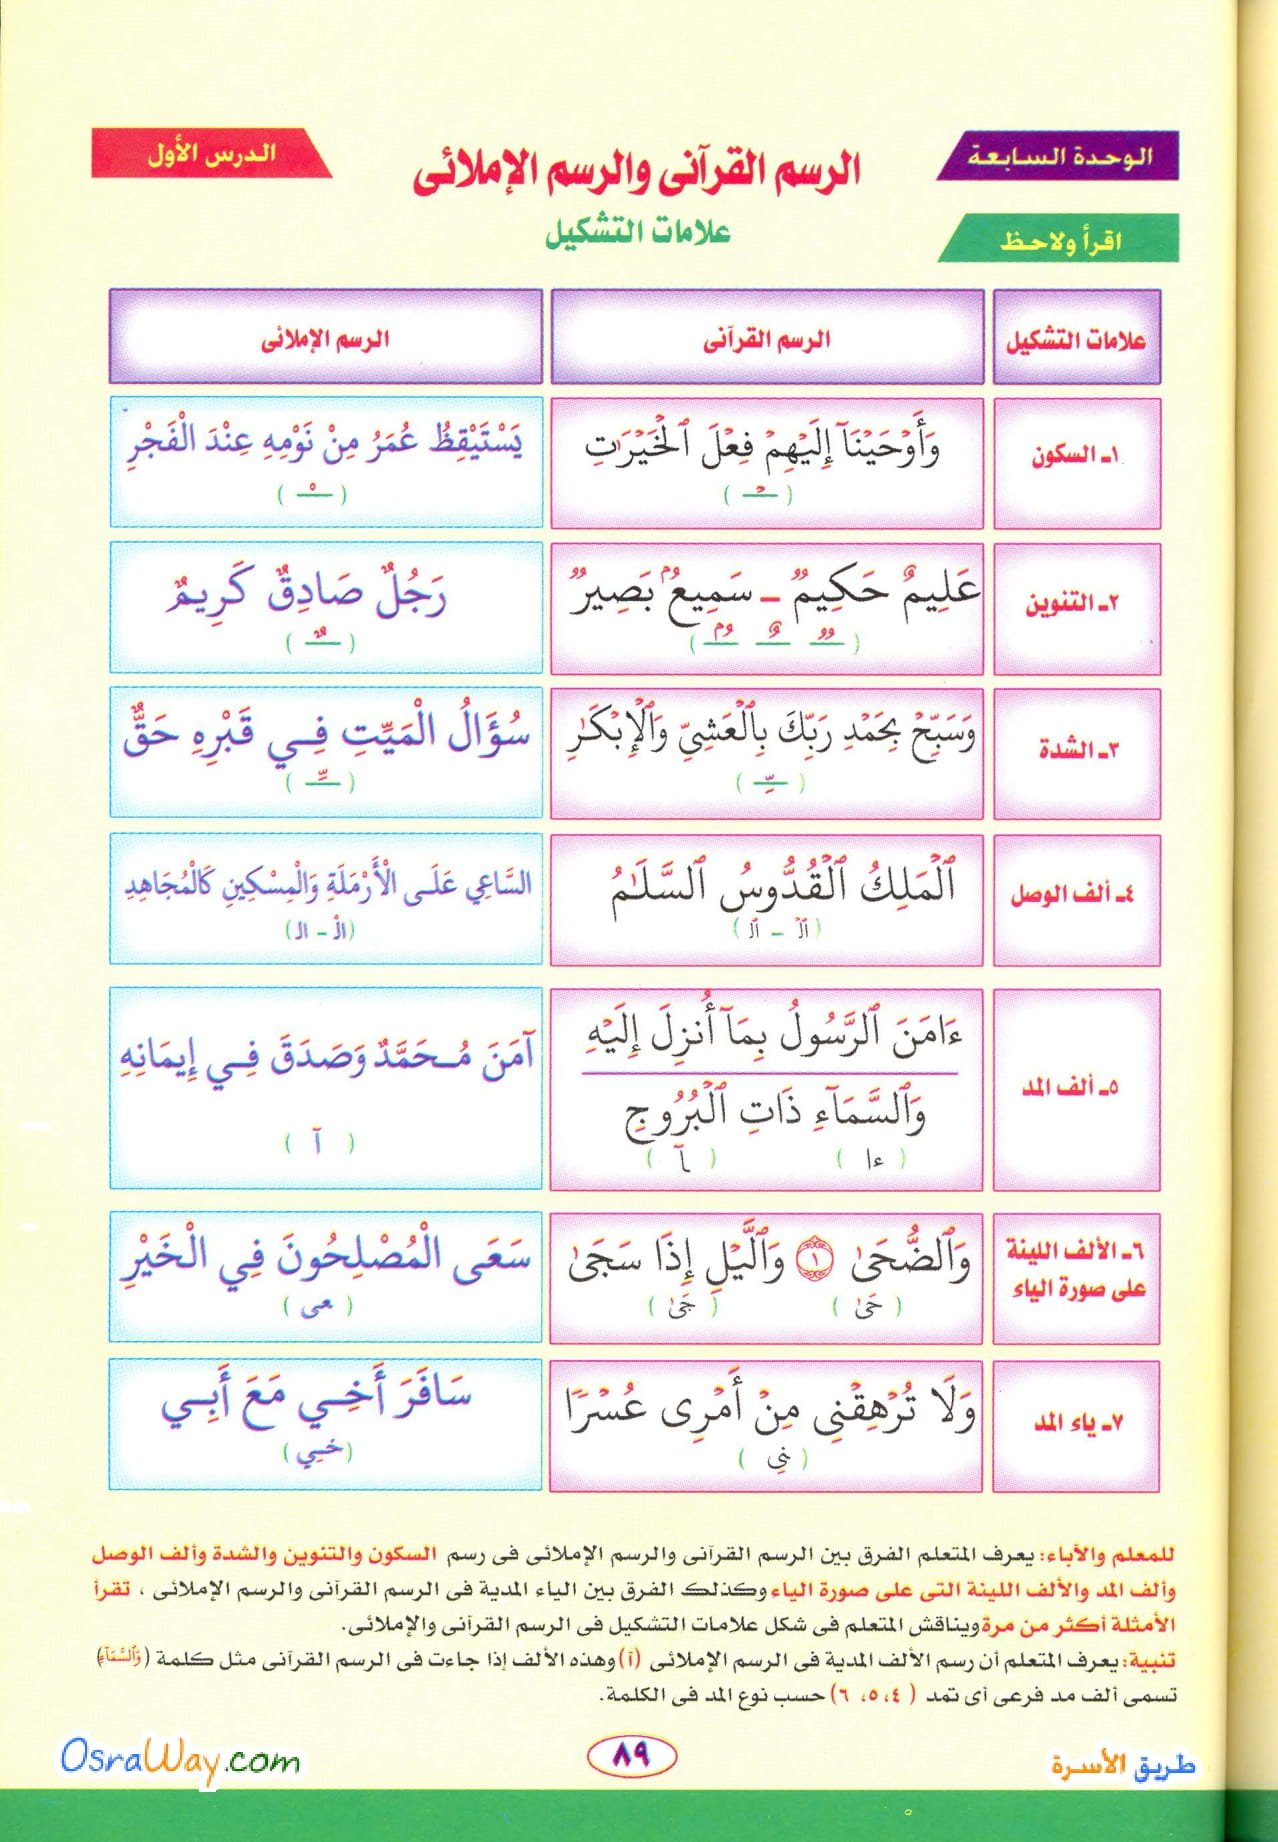 الوحدة السابعة
الرسم القرآنى والرسم الإملائى
الدرس الأول
علامات التشكيل
اقرأ ولاحظ
علامات التشكيل
الرسم القرآنى
الرسم الإملائى
١ـ السكون
وَأَوۡحَيۡنَآ إِلَيۡهِمۡ فِعۡلَ ٱلۡخَيۡرَٰتِ
( ـۡـ )
يَسْتَيْقِظُ عُمَرُ مِنْ نَوْمِهِ عِنْدَ الْفَجْرِ
( ـْـ )
٢ـ التنوين
عَلِيمٌ حَكِيمٞ ـ سَمِيعُۢ بَصِيرٞ
عَلِيمٌ
رَجُلٌ صَادِقٌ كَرِيمٌ
( ـٌـ )
٣ـ الشدة
وَسَبِّحۡ بِحَمۡدِ رَبِّكَ بِٱلۡعَشِيِّ وَٱلۡإِبۡكَٰرِ
( ـِّـ )
سُؤَالُ الْمَيِّتِ فِي قَبْرِهِ حَقٌّ
( ـِّـ )
٤ـ ألف الوصل
ٱلۡمَلِكُ ٱلۡقُدُّوسُ ٱلسَّلَٰمُ
( ٱلۡ ـ ٱل )
السَّاعِي عَلَى الْأَرْمَلَةِ وَالْمِسْكِينِ كَالْمُجَاهِدِ
(الْ - ال)
٥ـ ألف المد
ءَامَنَ ٱلرَّسُولُ بِمَآ أُنزِلَ إِلَيۡهِ
وَٱلسَّمَآءِ ذَاتِ ٱلۡبُرُوجِ
( ءا ) ( آ )
آمَنَ مُحَمَّدٌ وَصَدَقَ فِي إِيمَانِهِ
( آ )
٦ـ الألف اللينة
على صورة الياء
وَٱلضُّحَىٰ ١ وَٱلَّيۡلِ إِذَا سَجَىٰ
( حَىٰ ) ( جَىٰ )
سَعَى الْمُصْلِحُونَ فِي الْخَيْرِ
( عى )
٧ـ ياء المد
وَلَا تُرۡهِقۡنِي مِنۡ أَمۡرِي عُسۡرٗا
( نِي )
سَافَرَ أَخِي مَعَ أَبِي
(خِي)
للمعلم والأباء: يعرف المتعلم الفرق بين الرسم القرآنى والرسم الإملائى فى رسم السكون والتنوين والشدة وألف الوصل
وألف المد والألف اللينة التى على صورة الياء وكذلك الفرق بين الياء المدية فى الرسم القرآنى والرسم الإملائى ، تقرأ
الأمثلة أكثر من مرة ويناقش المتعلم فى شكل علامات التشكيل فى الرسم القرآنى والإملائى.
تنبية: يعرف المتعلم أن رسم الألف المدية فى الرسم الإملائى (آ) وهذه الألف إذا جاءت فى الرسم القرآنى مثل كلمة (وَٱلسَّمَآءِ)
تسمى ألف مد فرعى أى تمد (٤، ٥، ٦) حسب نوع المد فى الكلمة.
٨٩
OsraWay.com
طريق الأسرة